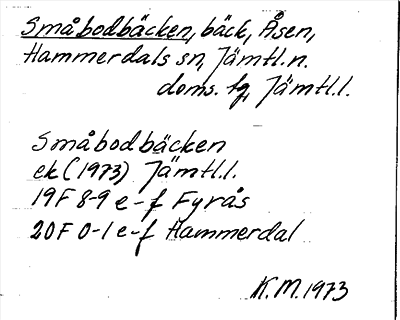 Småbodbäcken, bäck, Åsen,
Hammerdals sn, Jämtl. n.
doms. fg, Jämtl. l.
Småbodbäcken
ek (1973) Jämtl. l.
19F 8-9 e-f Fyrås
20F 0-1 e-f Hammerdal
K.M. 1973